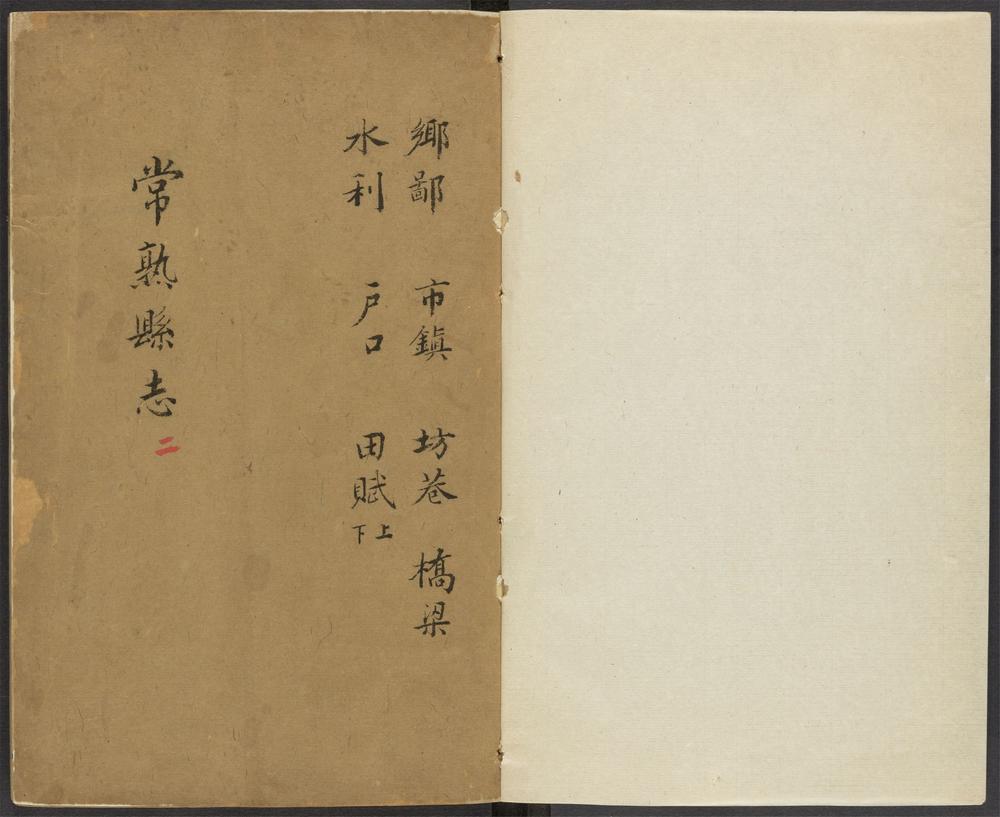 鄉鄙 市鎮 坊巷 橋梁
水利 戶口 田賦上下
常熟縣志二